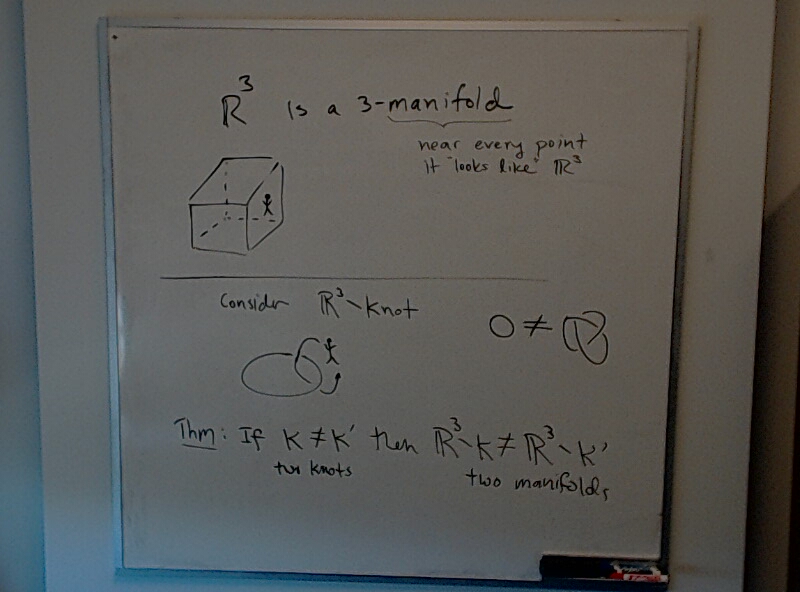 ℝ³ is a 3-manifold
near every point
it "looks like" ℝ³
Consider ℝ³∖Knot
O ≠
Thm: If K ≠ K' then ℝ³∖K ≠ ℝ³∖K'
two knots
two manifolds